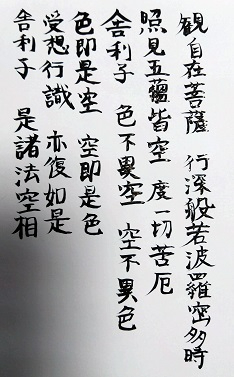 観自在菩薩 行深般若波羅密多時
照見五蘊皆空 度一切苦厄
舎利子 色不異空 空不異色
色即是空 空即是色
受想行識 亦復如是
舎利子 是諸法空相